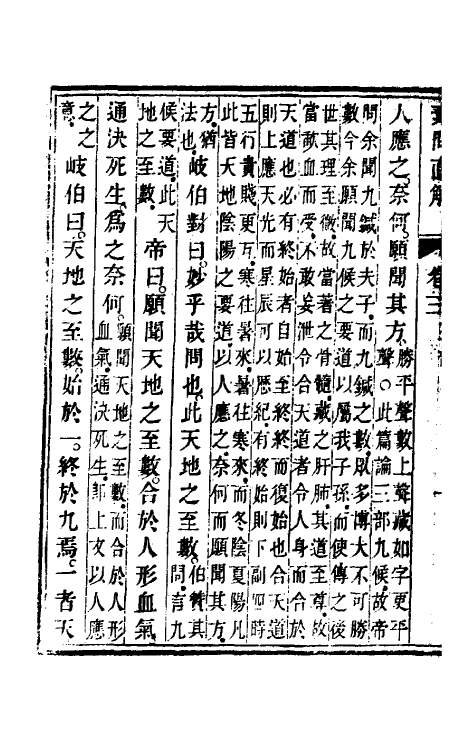 人應之奈何。願聞其方。勝平聲數上聲藏如字更平聲。○此篇論三部九候。故帝
問余聞九鍼於夫子。而九鍼之數。眾多博大。不可勝
數。今余願聞九候之要道。以屬我子孫。而使傳之後
世。其理至微。故當著之骨髓。藏之肝肺。其道至尊。故
當歃血而受。不敢妄泄。令合天道者。令人身而合於
天道也。必有終始者。自始至終。終而復始也。合天道
則上應天光。而星辰可以歷紀。有終始。則下副四時
五行。貴賤更互。寒往暑來。暑往寒來。而冬陰夏陽。凡
此皆天地陰陽之要道。以人應之。奈何而願聞其方。
方。猶法也。岐伯對曰。妙乎哉問也。此天地之至數。伯贊其問。言九
候要道。此天地之至數。帝曰。願聞天地之至數。合於人形血氣。
通決死生。為之奈何。願聞天地之至數。而合於人形血氣。通決死生。即上文以人應
之之意。岐伯曰。天地之至數。始於一。終於九焉。一者天